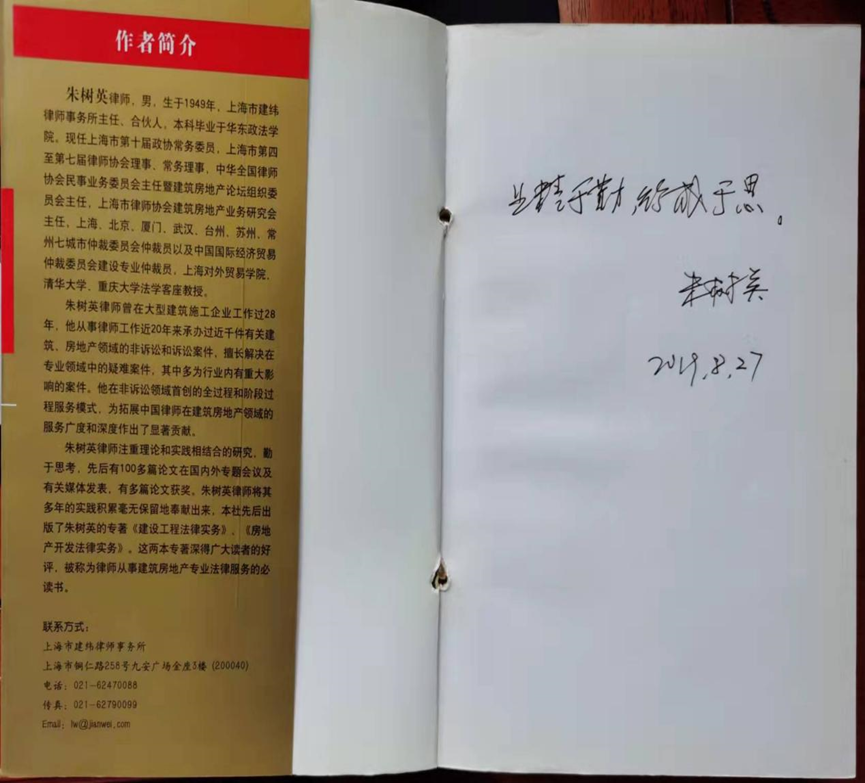 作者简介
朱树英律师，男，生于1949年，上海市建纬
律师事务所主任、合伙人，本科毕业于华东政法学
院。现任上海市第十届政协常务委员，上海市第四
至第七届律师协会理事、常务理事，中华全国律师
协会民事业务委员会主任暨建筑房地产论坛组织委
员会主任，上海市律师协会建筑房地产业务研究会
主任，上海、北京、厦门、武汉、台州、苏州、常
州七城市仲裁委员会仲裁员以及中国国际经济贸易
仲裁委员会建设专业仲裁员，上海对外贸易学院、
清华大学、重庆大学法学客座教授。
朱树英律师曾在大型建筑施工企业工作过28
年，他从事律师工作近20年来承办过近千件有关建
筑、房地产领域的非诉讼和诉讼案件，擅长解决在
专业领域中的疑难案件，其中多为行业内有重大影
响的案件。他在非诉讼领域首创的全过程和阶段过
程服务模式，为拓展中国律师在建筑房地产领域的
服务广度和深度作出了显著贡献。
朱树英律师注重理论和实践相结合的研究，勤
于思考，先后有100多篇论文在国内外专题会议及
有关媒体发表，有多篇论文获奖。朱树英律师将其
多年的实践积累毫无保留地奉献出来，本社先后出
版了朱树英的专著《建设工程法律实务》、《房地
产开发法律实务》。这两本专著深得广大读者的好
评，被称为律师从事建筑房地产专业法律服务的必
读书。
联系方式：
上海市建纬律师事务所
上海市铜仁路258号九安广场金座3楼 (200040)
电话：021-62470088
传真：021-62790099
Email：lw@jianwei.com
业精于勤，终成于思。
朱树英
2019.8.27